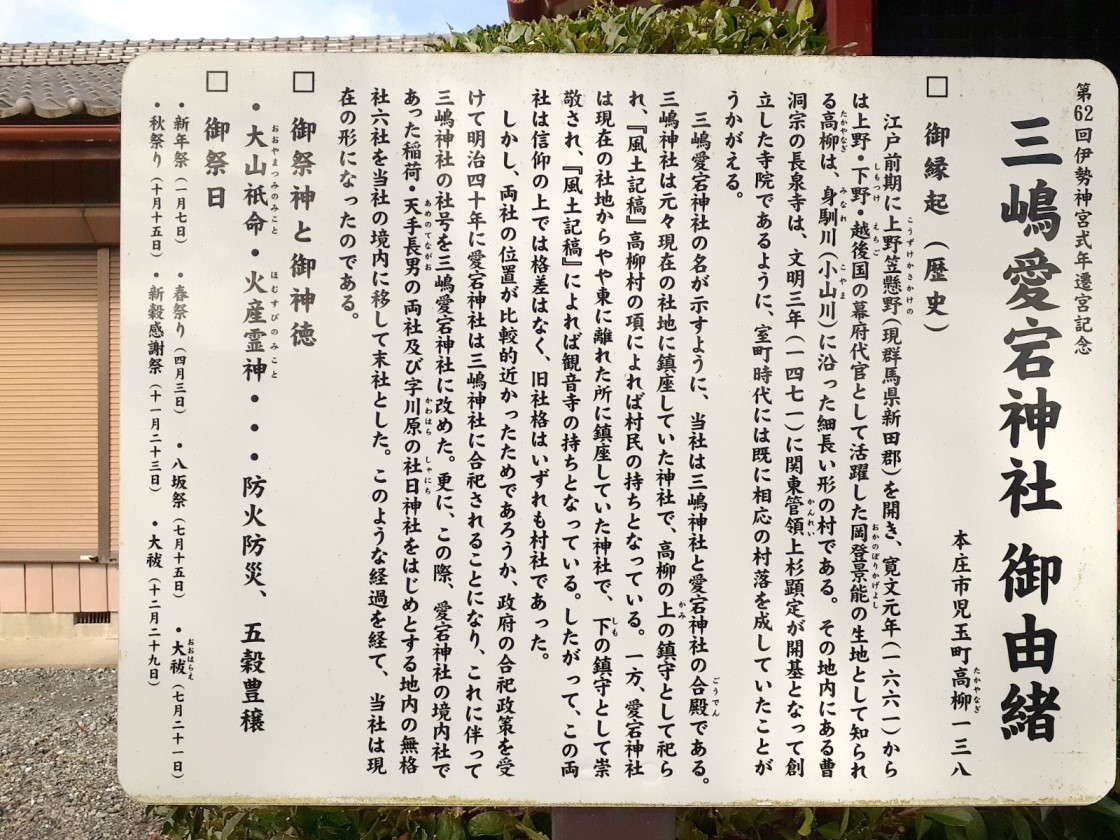 第62回伊勢神宮式年遷宮記念
三嶋愛宕神社 御由緒
本庄市児玉町高柳一三八
□ 御縁起（歴史）
江戸前期に上野笠懸野（現群馬県新田郡）を開き、寛文元年（一六六一）から
は上野・下野・越後国の幕府代官として活躍した岡登景能の生地として知られ
る高柳は、身馴川（小山川）に沿った細長い形の村である。その地内にある曹
洞宗の長泉寺は、文明三年（一四七一）に関東管領上杉顕定が開基となって創
立した寺院であるように、室町時代には既に相応の村落を成していたことが
うかがえる。
三嶋愛宕神社の名が示すように、当社は三嶋神社と愛宕神社の合殿である。
三嶋神社は元々現在の社地に鎮座していた神社で、高柳の上の鎮守として祀ら
れ、『風土記稿』高柳村の項によれば村民の持ちとなっている。一方、愛宕神社
は現在の社地からやや東に離れた所に鎮座していた神社で、下の鎮守として崇
敬され、『風土記稿』によれば観音寺の持ちとなっている。したがって、この両
社は信仰の上では格差はなく、旧社格はいずれも村社であった。
しかし、両社の位置が比較的近かったためであろうか、政府の合祀政策を受
けて明治四十年に愛宕神社は三嶋神社に合祀されることになり、これに伴って
三嶋神社の社号を三嶋愛宕神社に改めた。更に、この際、愛宕神社の境内社で
あった稲荷・天手長男の両社及び字川原の社日神社をはじめとする地内の無格
社六社を当社の境内に移して末社とした。このような経過を経て、当社は現
在の形になったのである。
□ 御祭神と御神徳
・大山祇命・火産霊神・・・防火防災、五穀豊穣
□ 御祭日
・新年祭（一月七日） ・春祭り（四月三日） ・八坂祭（七月十五日） ・大祓（七月二十一日）
・秋祭り（十月十五日） ・新穀感謝祭（十一月二十三日） ・大祓（十二月二十九日）